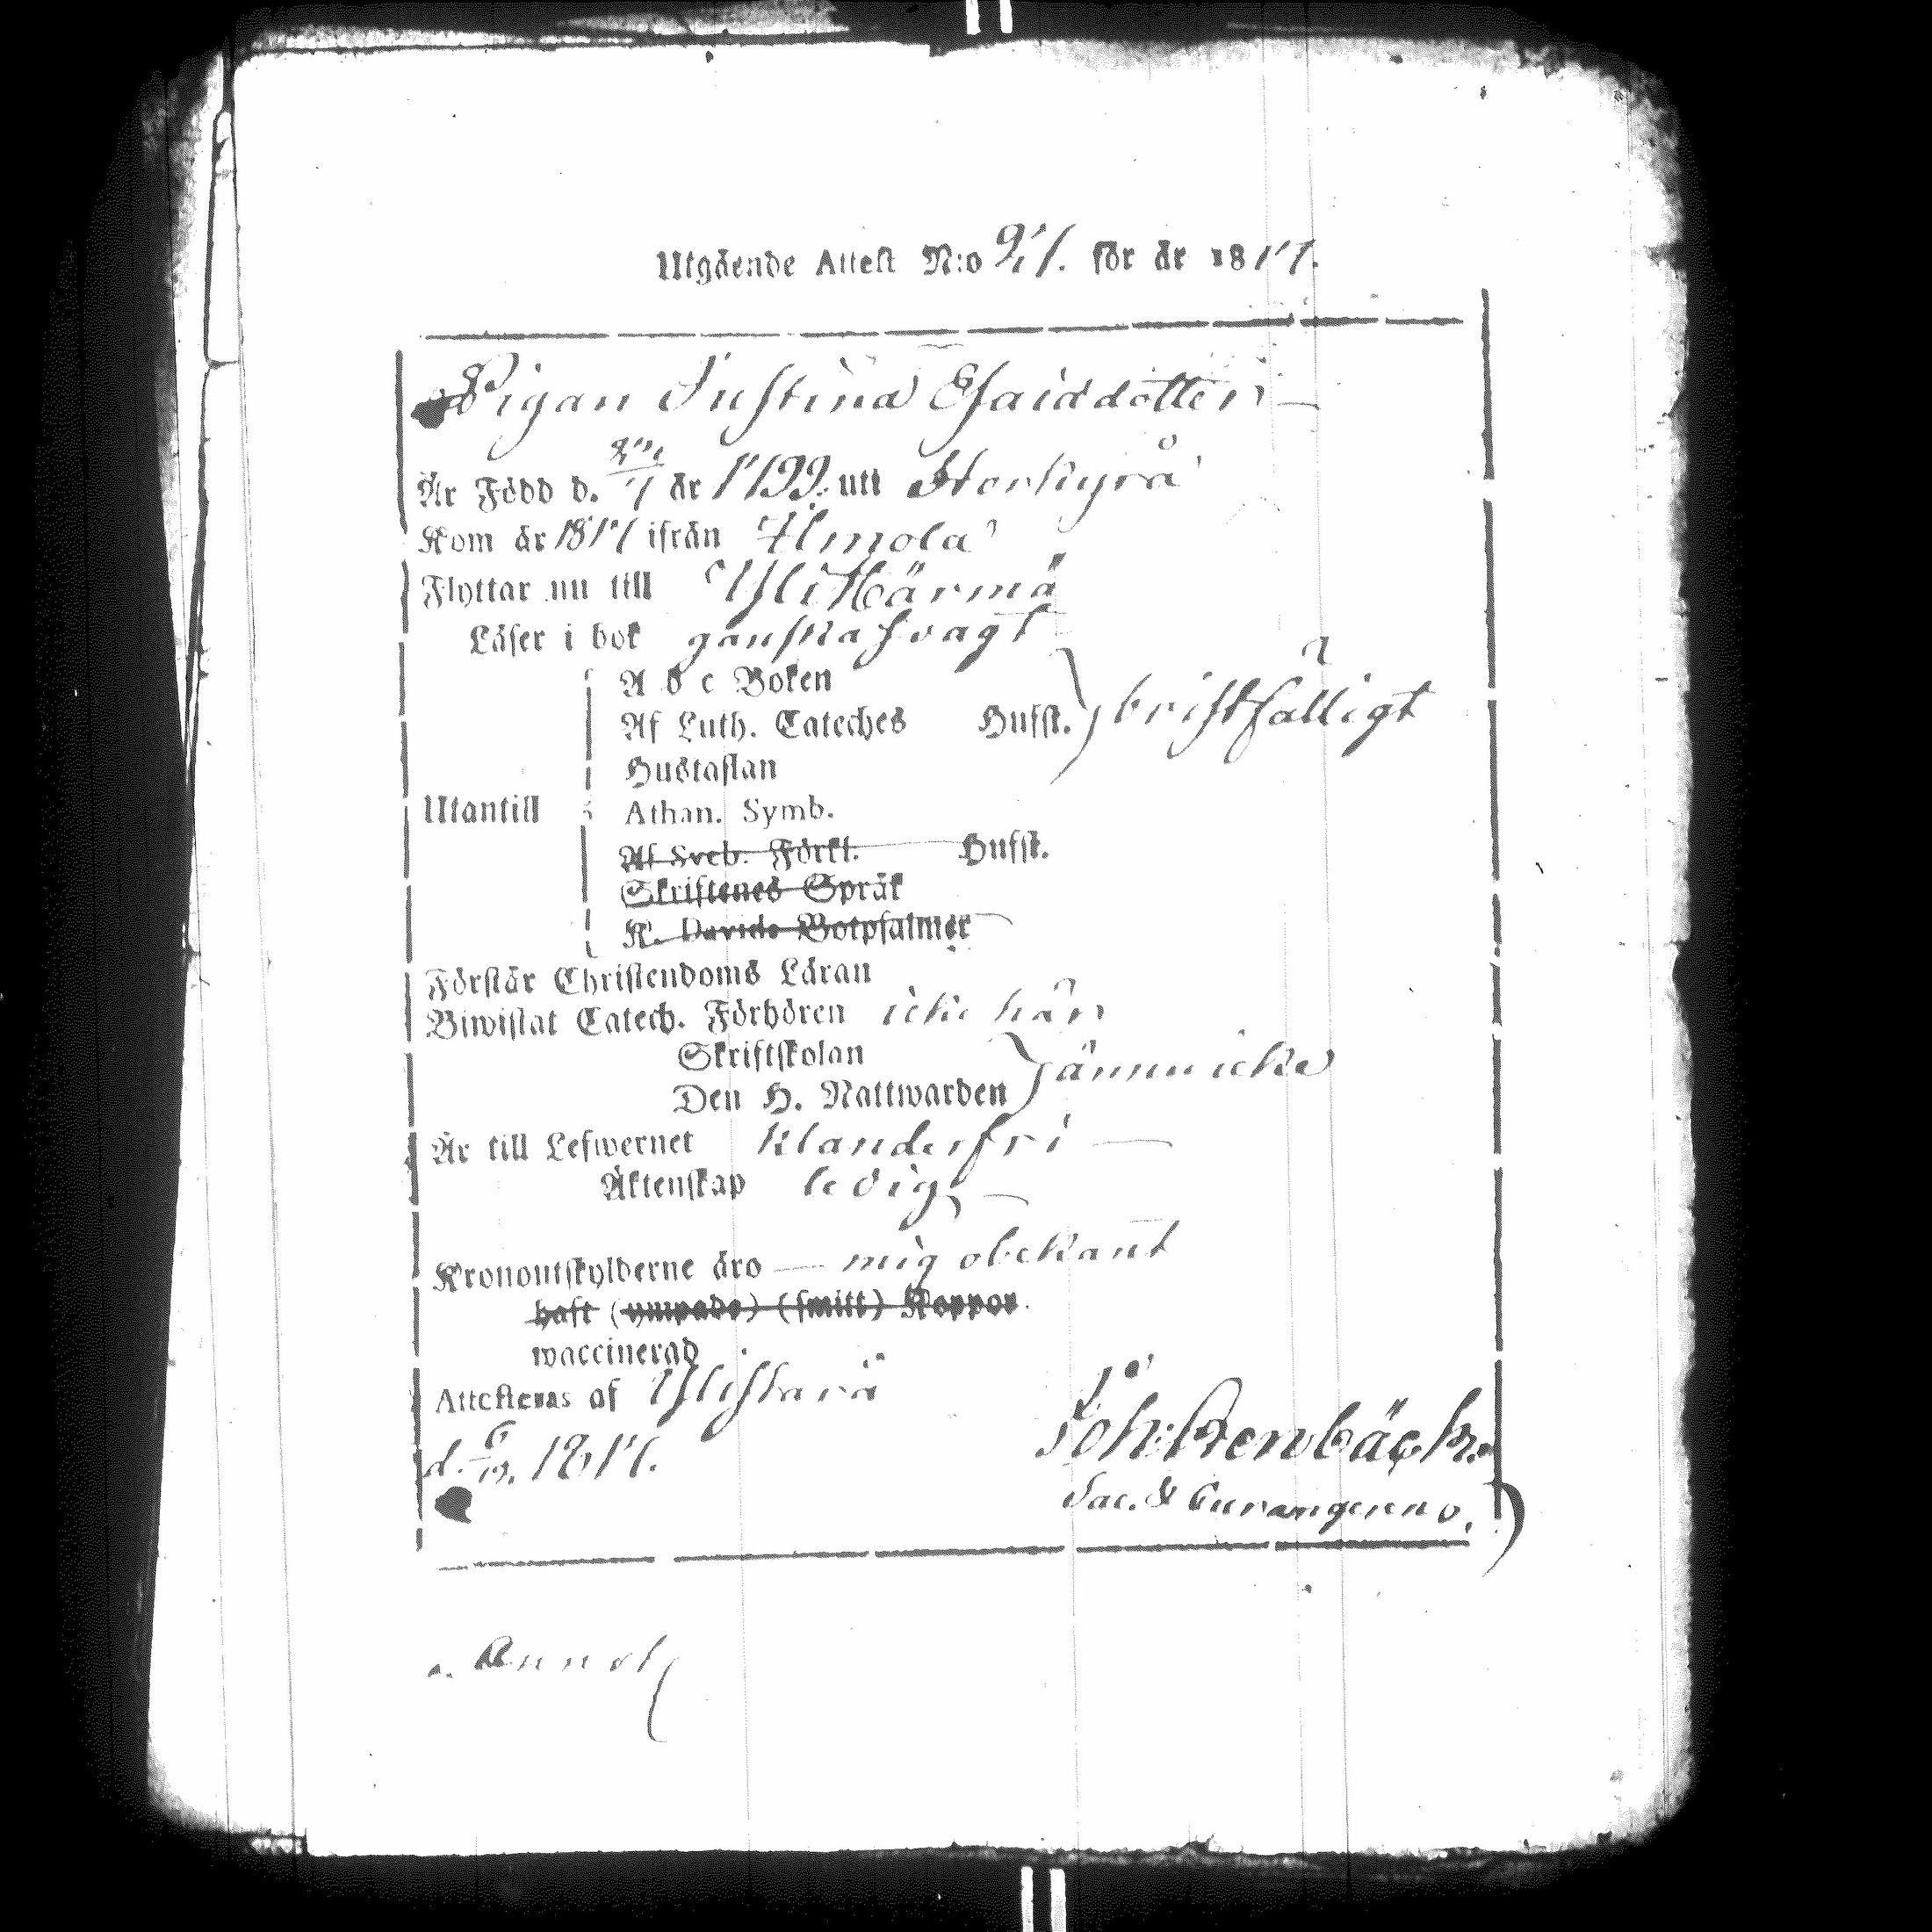 Utgående Attest N:o 91. för år 1817.
Pigan Justina Esaiædotter
Är Född d. år 1799. uti Storkyrå
Kom år 1817 ifrån Ilmola
Flyttar nu till Ylihärmä
Läser i bok ganska svagt
A b c Boken
Af Luth. Cateches Hufst. } bristfälligt
Hustaflan
Utantill
Athan. Symb.
Af Sveb. Förkl. Hufst.
Skriftenes Språk
K. Davids Botpsalmer
Förstår Christendoms Läran
Biwistat Catech. Förhören icke här
Skriftskolan
Den H. Nattwarden } ännu icke
Är till Lefwernet klanderfri
Äktenskap ledig
Kronoutskylderne äro — mig obekant
haft (ympade) (smitt) Koppor.
waccinerad
Attesteras af Ylistarå
d. 6/10. 1817. Joh: Stenbäck.
Sac. &